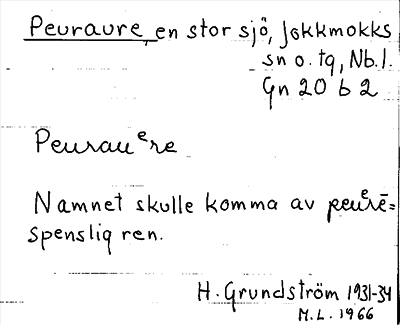 Peuraure, en stor sjö, Jokkmokks
sn o. tg, Nb. l.
Gn 20 b 2
Peurauᵉre
Namnet skulle komma av peuᵉrē=
spenslig ren.
H. Grundström 1931-34
M.L. 1966